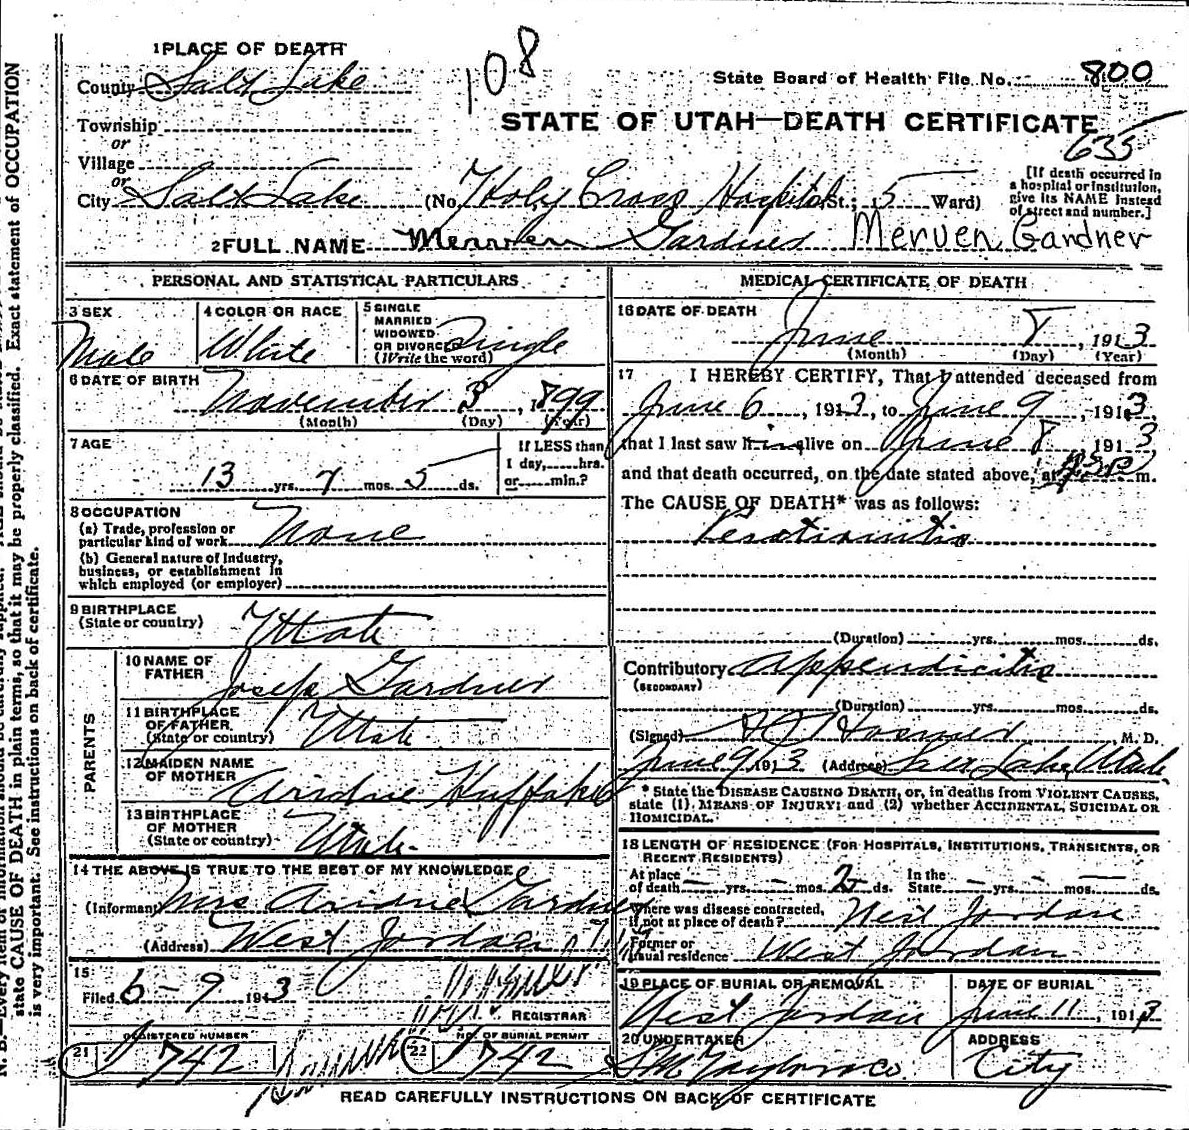 1 PLACE OF DEATH
108
State Board of Health File No. 800
County Salt Lake
STATE OF UTAH—DEATH CERTIFICATE
Township
or
635
Village
or
City Salt Lake (No. Holy Cross Hospital St.; 5 Ward)
[If death occurred in
a hospital or institution,
give its NAME instead
of street and number.]
2 FULL NAME Gardner Merven Gardner
PERSONAL AND STATISTICAL PARTICULARS
3 SEX
Male
4 COLOR OR RACE
White
5 SINGLE
MARRIED
WIDOWED
OR DIVORCED
(Write the word)
Single
6 DATE OF BIRTH
November 3, 1899
(Month) (Day) (Year)
7 AGE
13 yrs. 7 mos. 5 ds.
If LESS than
1 day,......hrs.
or......min.?
8 OCCUPATION
(a) Trade, profession or
particular kind of work None
(b) General nature of Industry,
business, or establishment in
which employed (or employer)
9 BIRTHPLACE
(State or country)
Utah
PARENTS
10 NAME OF
FATHER
Joseph Gardner
11 BIRTHPLACE
OF FATHER
(State or country)
Utah
12 MAIDEN NAME
OF MOTHER
Huffaker
13 BIRTHPLACE
OF MOTHER
(State or country)
Utah.
14 THE ABOVE IS TRUE TO THE BEST OF MY KNOWLEDGE
(Informant) Mrs Gardner
(Address) West Jordan
15
Filed 6-9 1913
REGISTRAR
REGISTERED NUMBER
21 742
NO. OF BURIAL PERMIT
22 742
MEDICAL CERTIFICATE OF DEATH
16 DATE OF DEATH
June 8, 1913
(Month) (Day) (Year)
17 I HEREBY CERTIFY, That I attended deceased from
June 6, 1913, to June 9, 1913,
that I last saw him alive on June 8 1913
and that death occurred, on the date stated above, at m.
The CAUSE OF DEATH* was as follows:
(Duration) yrs. mos. ds.
Contributory appendicitis
(SECONDARY)
(Duration) yrs. mos. ds.
(Signed) M. D.
June 9 1913 (Address) Salt Lake, Utah.
* State the DISEASE CAUSING DEATH, or, in deaths from VIOLENT CAUSES,
state (1) MEANS OF INJURY; and (2) whether ACCIDENTAL, SUICIDAL OR
HOMICIDAL.
18 LENGTH OF RESIDENCE (FOR HOSPITALS, INSTITUTIONS, TRANSIENTS, OR
RECENT RESIDENTS)
At place
of death — yrs. - mos. 2 ds.
In the
State — yrs. - mos. — ds.
Where was disease contracted,
if not at place of death? West Jordan
Former or
usual residence West Jordan
19 PLACE OF BURIAL OR REMOVAL
West Jordan
DATE OF BURIAL
June 11, 1913
20 UNDERTAKER
S M Taylor & co.
ADDRESS
City
READ CAREFULLY INSTRUCTIONS ON BACK OF CERTIFICATE
state CAUSE OF DEATH in plain terms, so that it may be properly classified. Exact statement of OCCUPATION
is very important. See instructions on back of certificate.